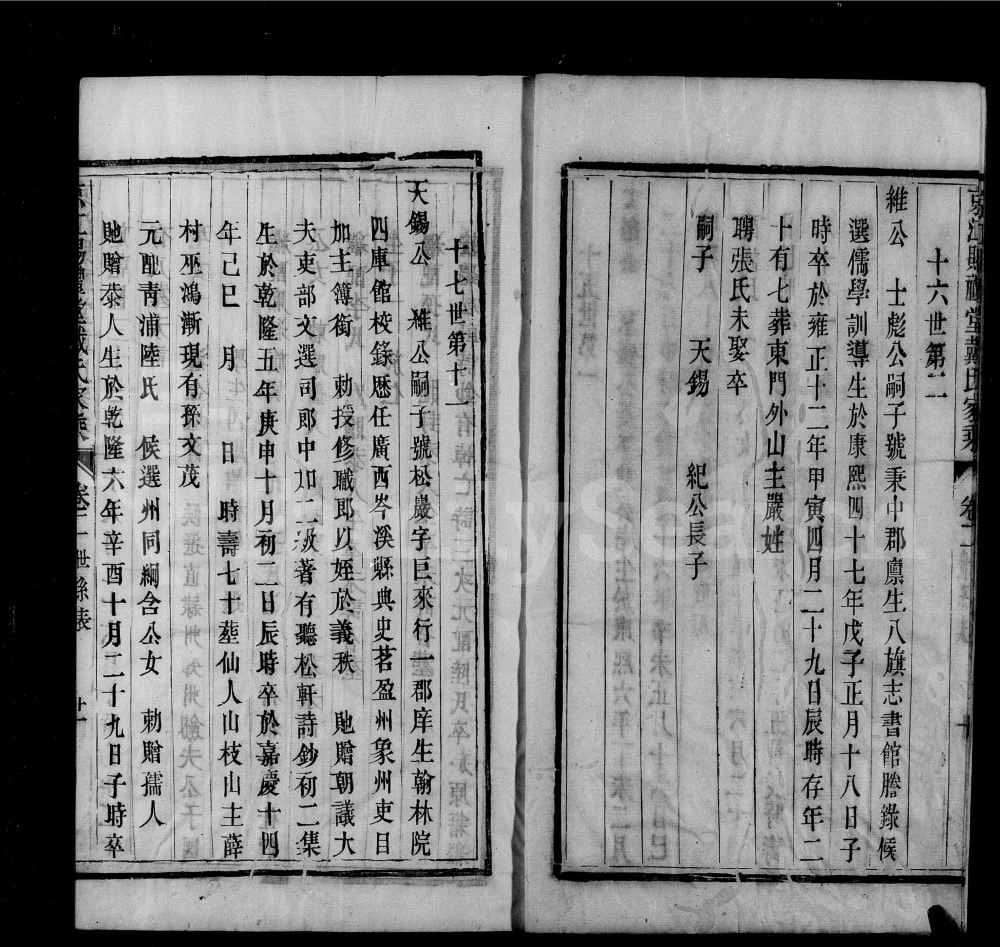 京江賜禮堂戴氏家乘 卷二
十六世第二
維公 士彪公嗣子號秉中郡廩生八旗志書館謄錄候
選儒學訓導生於康熙四十七年戊子正月十八日子
時卒於雍正十二年甲寅四月二十九日辰時存年二
十有七葬東門外山主嚴姓
聘張氏未娶卒
嗣子 天錫 紀公長子
十七世第十一
天錫公 維公嗣子號松巖字巨來行一郡庠生翰林院
四庫館校錄歷任廣西岑溪縣典史茗盈州象州吏目
加主簿銜 勅授修職郎以姪於義秩 貤贈朝議大
夫吏部文選司郎中加二級著有聽松軒詩鈔初二集
生於乾隆五年庚申十月初二日辰時卒於嘉慶十四
年己巳 月 日 時壽七十塟仙人山枝山主薛
村巫鴻漸現有孫文茂
元配青浦陸氏 候選州同綱含公女 勅贈孺人
貤贈恭人生於乾隆六年辛酉十月二十九日子時卒
卷二世系表